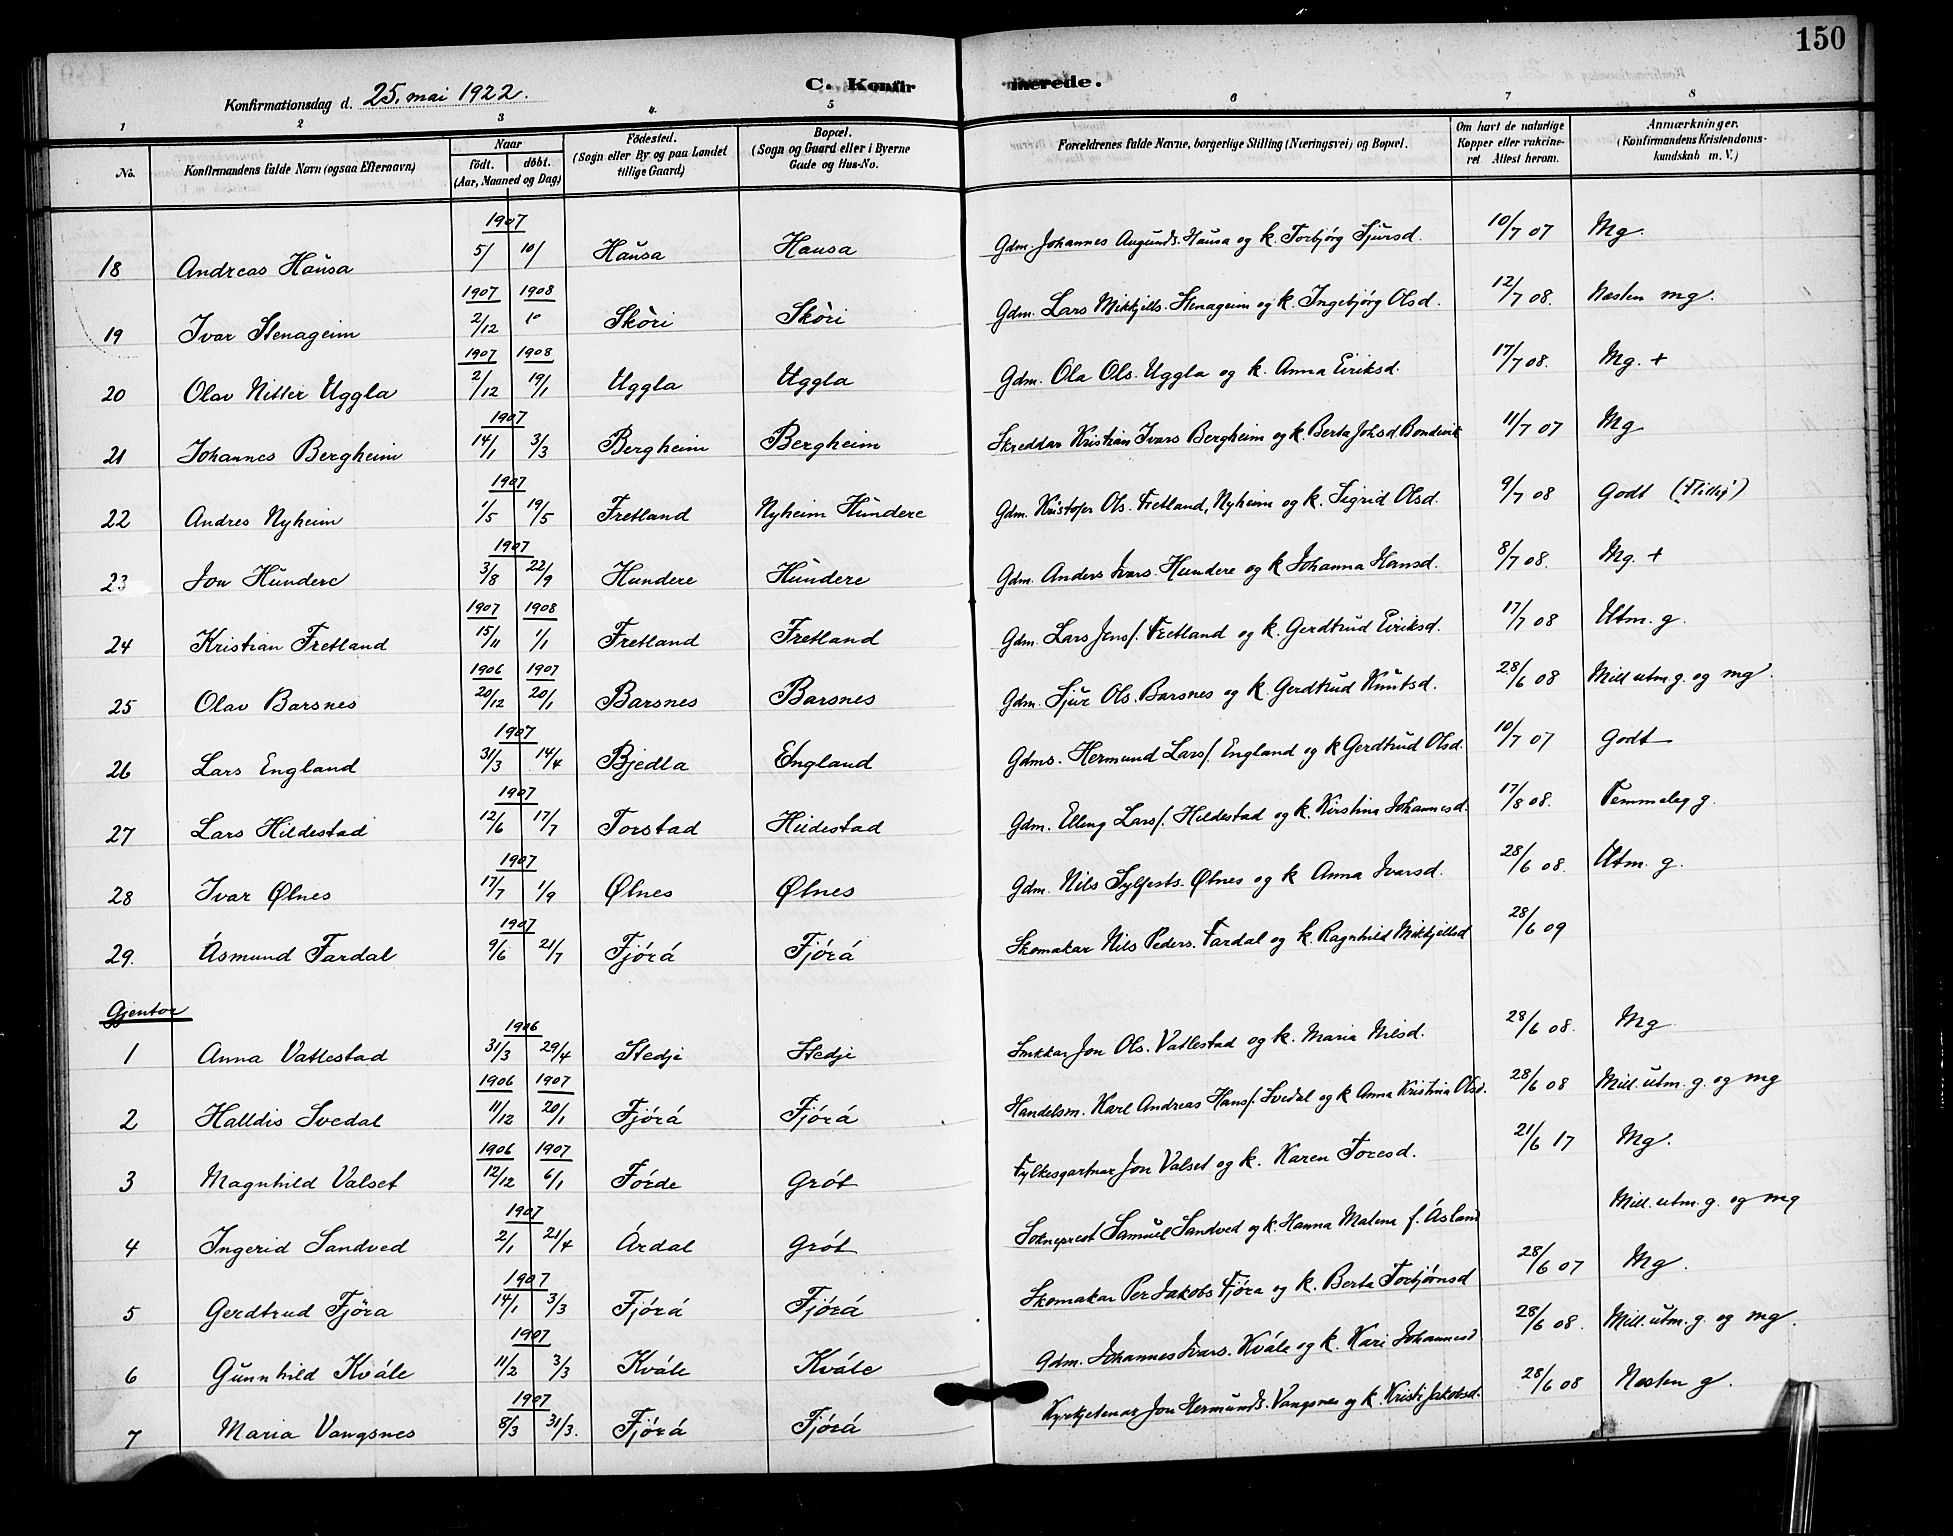 150
Konfirmationsdag d. 25. mai 1922. C. Konfirmerede.
1 2 3 4. 5 6 7 8
No. Konfirmandens fulde Navn (ogsaa Efternavn) Naar födt. döbt. (Aar, Maaned og Dag) Födested. (Sogn eller By og paa Landet tillige Gaard) Bopæl. (Sogn og Gaard eller i Byerne Gade og Hus-No. Forældrenes fulde Navne, borgerlige Stilling (Næringsvei) og Bopæl. Om havt de naturlige Kopper eller vakcineret. Attest herom. Anmærkninger. (Konfirmandens Kristendomskundskab m. V.)
1907
18 Andreas Hausa 5/ 10/ Hausa Hausa Gdm. Johannes Augunds. Hausa og k. Torbjørg Sjursd. 10/7 07 Mg.
1907 1908
19 Ivar Stenageim 2/12 10 Skòri Skòri Gdm. Lars Mikkjells. Stenageim og k. Ingebjørg Olsd. 12/7 08. Næsten mg.
1907 1908
20 Olav Nitter Uggla 2/12 19/1 Uggla Uggla Gdm. Ola Ols. Uggla og k. Anna Eiriksd. 17/7 08. Mg. +
1907
21 Johannes Bergheim 14/1 3/3 Bergheim Bergheim Skreddar Kristian Ivars Bergheim og k. Berta Johsd. Bondevik 11/7 07 Mg
1907
22 Andres Nyheim 1/5 19/5 Fretland Nyheim Hundere Gdm. Kristofer Ols. Fretland, Nyheim og k. Sigrid Olsd. 9/7 08 Godt
1907
23 Jon Hundere 3/8 22/9 Hundere Hundere Gdm. Anders Ivars. Hundere og k Johanna Hansd. 8/7 08. Mg. +
1907 1908
24 Kristian Fretland 15/11 1/1 Fretland Fretland Gdm. Lars Jens/. Fretland og k. Gerdtrud Eiriksd. 17/7 08 Utm. g.
1906 1907
25 Olav Barsnes 20/12 20/1 Barsnes Barsnes Gdm. Sjur Ols. Barsnes og k. Gerdtrud Knutsd. 28/6 08 Mill utm. g. og mg.
1907
26 Lars England 31/3 14/4 Bjedla England Gdms. Hermund Lars/. England og k Gerdtrud Olsd. 10/7 07 Godt
1907
27 Lars Hildestad 12/6 17/7 Torstad Hildestad Gdm. Elling Lars/. Hildestad og k. Kirstina Johannesd. 17/8 08. Temmeleg g.
1907
28 Ivar Ølnes 17/7 1/9 Ølnes Ølnes Gdm. Nils Sylfests. Ølnes og k Anna Ivarsd. 28/6 08. Utm. g.
1907
29. Åsmund Fardal 9/6 21/7 Fjórá Fjórá Skomakar Nils Peders. Fardal og k. Ragnhild Mikkjellsd 28/6 09
Gjentor
1906
1 Anna Vatlestad 31/3 29/4 Stedje Stedje Snikkar Jon Ols. Vatlestad og k. Maria Nilsd. 28/6 08. Mg
1906 1907
2 Halldis Svedal 11/12 20/1 Fjórá Fjórá Handelsm. Karl Andreas Hans/. Svedal og k Anna Kristina Olsd. 28/6 08 Mill. utm. g. og mg
1906 1907
3 Magnhild Valset 12/12 6/1 Fórde Grót Fylkesgartnar Jon Valset og k. Karen Toresd. 21/6 17 Mg.
1907
4 Ingerid Sandved 2/1 21/4 Árdal Grót Sokneprest Samuel Sandved og k. Hanna Malena f. Åsland Mill. utm. g. og mg
1907
5 Gerdtrud Fjöra 14/1 3/3 Fjórá Fjórá Skomakar Per Jakobs Fjóra og k. Berta Torbjórnsd 28/6 07 Mg.
1907
6 Gunnhild Kvåle 11/2 3/3 Kvåle Kvåle Gdm. Johannes Ivars. Kvåle og k. Kari Johannesd 28/6 08. Mill. utm. g. og mg.
1907
7 Maria Vangsnes 8/3 31/3. Fjórá Fjórá Kyrkjetenar Jon Hermunds. Vangsnes og k. Kristi Jakobsd. 28/6 08 Næsten g.